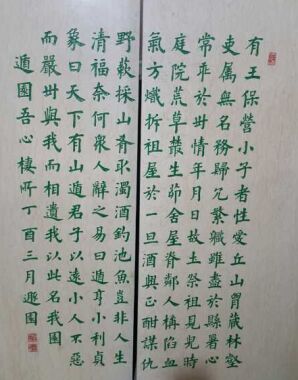 有王保營小子者性愛丘山胃藏林壑
吏属無名務歸冗繁職雖盡於縣暑心
常乖於世情年月日故土祭祖見兒時
庭院荒草叢生茆舍屋脊鄰人構陷血
氣方熾拆祖屋於一旦酒興正酣謀仇
野蔌採山肴取濁酒釣池魚豈非人生
清福奈何衆人辭之易曰遁亨小利貞
象曰天下有山遁君子以遠小人不惡
而嚴世與我而相遺我以此名我園
遁園吾心棲所丁酉三月遯園